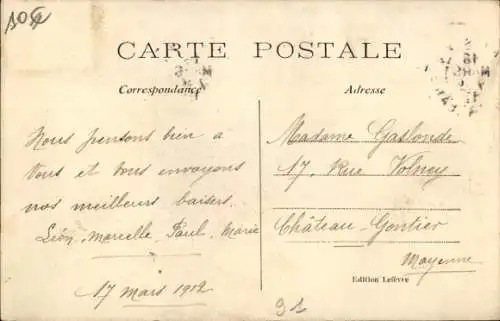 CARTE POSTALE
Correspondance
Nous pensons bien à
vous et vous envoyons
nos meilleurs baisers.
Léon, Marcelle, Paul, Marie
17 Mars 1912
Adresse
Madame Gaslonde
17, Rue Volney
Château-Gontier
Mayenne
Edition Lefèvre